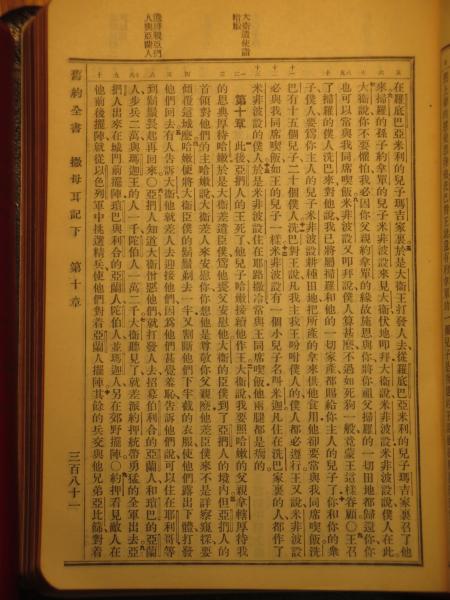 在羅底巴亞米利的兒子瑪吉家裏於是大衛王打發人去從羅底巴亞米利的兒子瑪吉家裏召了他
來掃羅的孫子約拿單的兒子米非波設來見大衛伏地叩拜大衛說米非波設米非波設說僕人在此
大衛說你不要懼怕我必因你父親約拿單的緣故施恩與你將你祖父掃羅的一切田地都歸還你你
也可以常與我同席喫飯米非波設又叩拜說僕人算甚麽不過如死狗一般竟蒙王這樣眷顧○王召
了掃羅的僕人洗巴來對他說我已將屬掃羅和他的一切家產都賜給你主人的兒子了你和你的衆
子僕人要爲你主人的兒子米非波設耕種田地把所產的拿來供他食用他卻要常與我同席喫飯洗
巴有十五個兒子二十個僕人洗巴對王說凡我主我王吩咐僕人的僕人都必遵行王又說米非波設
必與我同席喫飯如王的兒子一樣米非波設有一個小兒子名叫米迦凡住在洗巴家裏的人都作了
米非波設的僕人於是米非波設住在耶路撒冷常與王同席喫飯他兩腿都是瘸的
第十章 此後亞捫人的王死了他兒子哈嫩接續他作王大衛說我要照哈嫩的父親拿轄厚待我
的恩典厚待哈嫩於是大衛差遣臣僕爲他喪父安慰他大衛的臣僕到了亞捫人的境內但亞捫人的
首領對他們的主哈嫩說大衛差人來安慰你你想他是尊敬你父親麽他差臣僕來不是詳察窺探要
傾覆這城麽哈嫩便將大衛臣僕的鬍鬚剃去一半又割斷他們下半截的衣服使他們露出下體打發
他們回去有人告訴大衛他就差人去迎接他們因爲他們甚覺羞恥告訴他們說可以住在耶利哥等
到鬍鬚長起再回來○亞捫人知道大衛憎惡他們就打發人去招募伯利合的亞蘭人和瑣巴的亞蘭
人步兵二萬與瑪迦王的人一千陀伯人一萬二千大衛聽見了就差派約押統帶勇猛的全軍出去亞
捫人出來在城門前擺陣瑣巴與利合的亞蘭人陀伯人並瑪迦人另在郊野擺陣○約押看見敵人在
他前後擺陣就從以色列軍中挑選精兵使他們對着亞蘭人擺陣其餘的兵交與他兄弟亞比篩對着
舊約全書 撒母耳記下 第十章 三百八十一